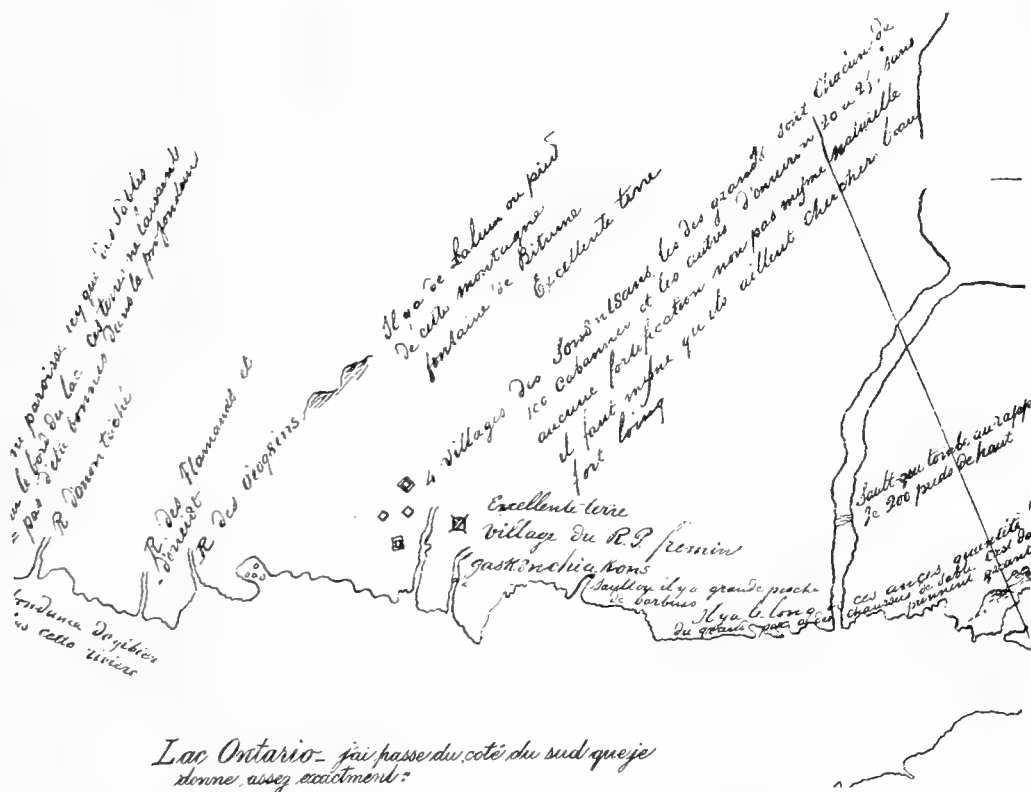 ne paroissi icy qui des Sables
le bord du Lac ces terres ne laissent
pas d'etre bonnes dans la profondeur
R d'anontiché
R. des Flamands et
R des oiogoins
Il y a de Lalun au pied
de cette montagne
fontaine de Bitume
Excellente terre
4 villages des Sonontsans, les des grands sont Chacun de
100 Cabannes et les autres d'environ 20 a 25, sans
aucune fortification non pas mesme naturelle
il faut mesme qu'ils aillent chercher l'eau
fort loing
Excellente terre
village du R. P. fremin
gaskonchiakons
Sault ou il y a grande pesche
de barbues
Il y a le long
Sault qui tombe au rapp
de 200 pieds de haut
ces ances quantité
chaussees de sable
prennent
ondance de gibier
cette riviere
Lac Ontario_ j'ai passe du coté du sud que je
donne assez exactment: